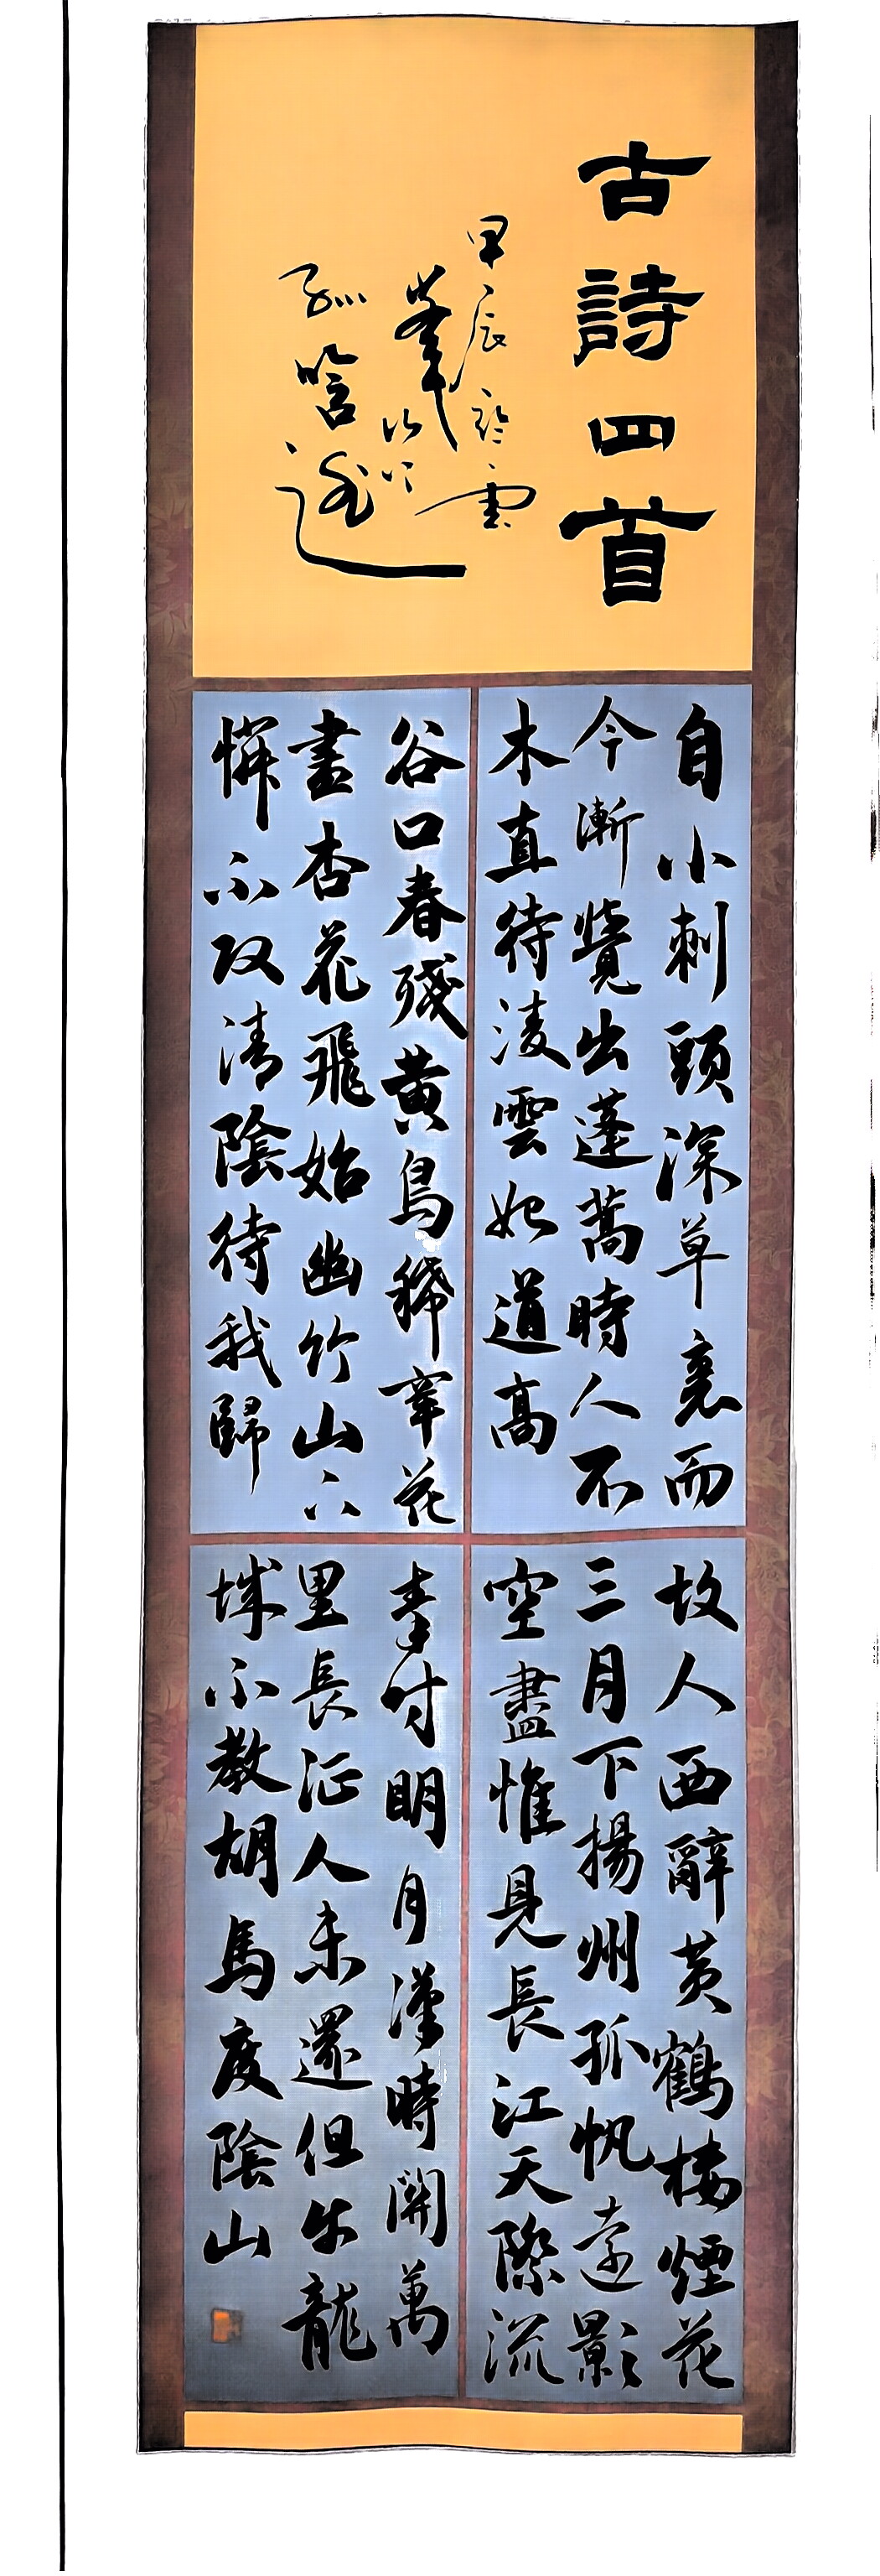 古詩四首
甲辰
雲
自小刺頭深草裏而
今漸覺出蓬蒿時人不
木直待淩雲始道高
谷口春殘黃鳥稀辛花
盡杏花飛始幽竹山下
憐不改清陰待我歸
故人西辭黃鶴樓煙花
三月下揚州孤帆遠影
空盡惟見長江天際流
秦时明月漢時關萬
里長征人未還但使龍
城不教胡馬度陰山